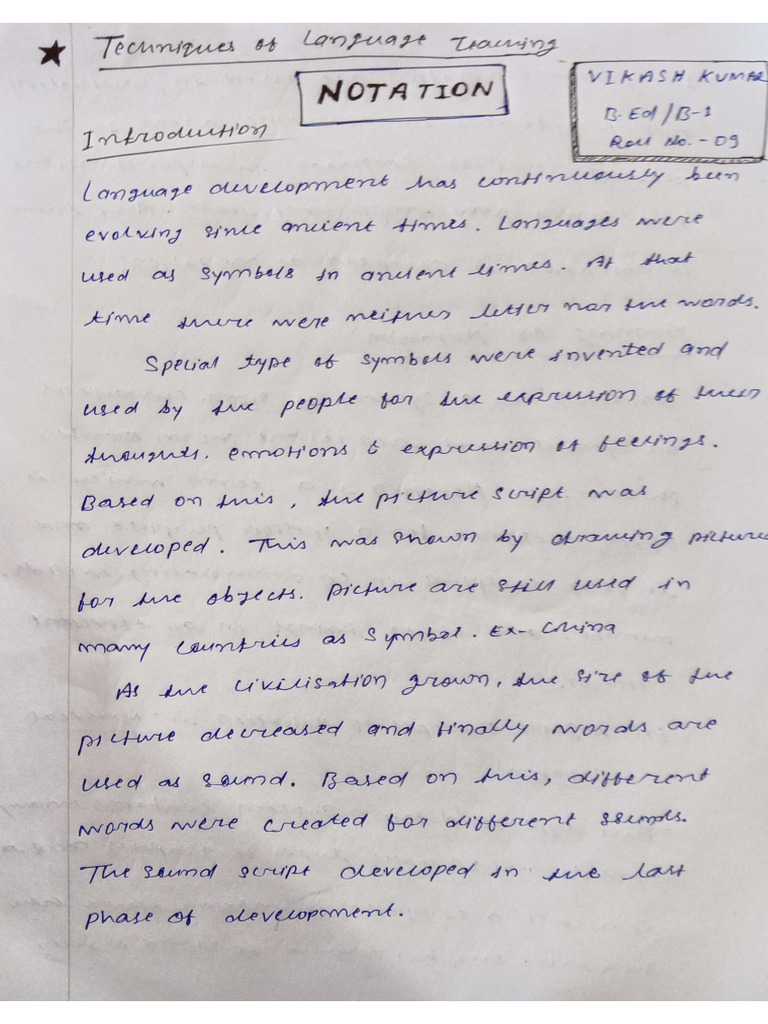 ★ Techniques of Language Training
NOTATION
VIKASH KUMAR
B.Ed/B-1
Roll No.-09
Introduction
Language development has continuously been
evolving since ancient times. Languages were
used as symbols in ancient times. At that
time there were neither letter nor the words.
Special type of symbols were invented and
used by the people for the expression of their
thoughts, emotions & expression of feelings.
Based on this, the picture script was
developed. This was shown by drawing picture
for the objects. picture are still used in
many countries as symbol. Ex- China
As the civilisation grown, the size of the
picture decreased and finally words are
used as sound. Based on this, different
words were created for different sounds.
The sound script developed in the last
phase of development.